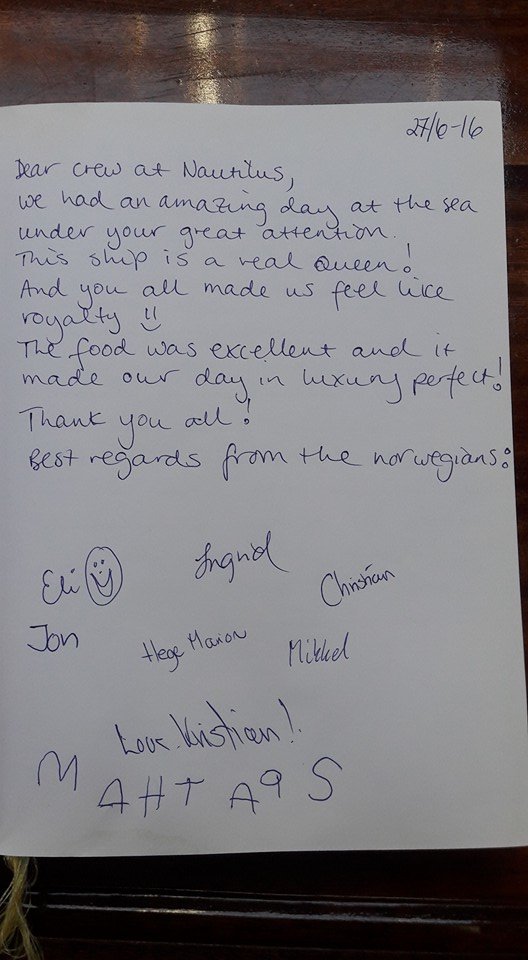 27/6-16
Dear crew at Nautilus,
we had an amazing day at the sea
under your great attention.
This ship is a real Queen!
And you all made us feel like
royalty !!
The food was excellent and it
made our day in luxury perfect!
Thank you all!
Best regards from the norwegians:
Eli Ingrid Christian
Jon Hege Marion Mikkel
Love. Kristian!
M A H T A 9 S